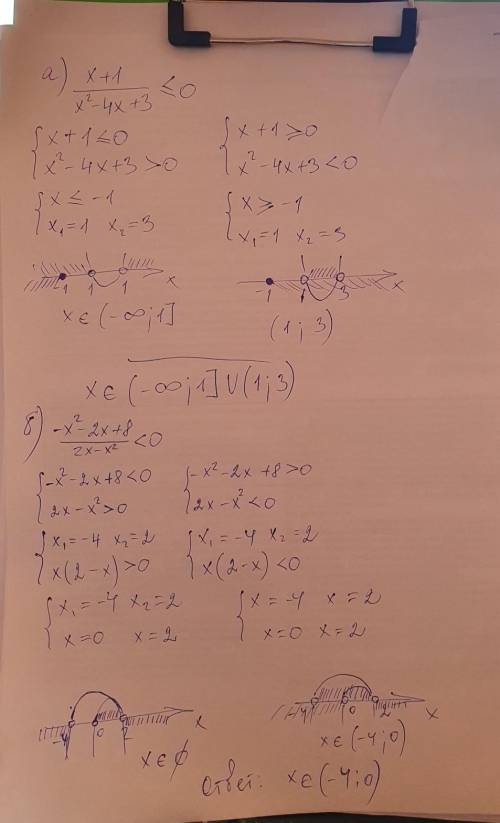 а) x+1 / x²-4x+3 ≤ 0
{x+1≤0 {x+1≥0
{x²-4x+3>0 {x²-4x+3<0
{x≤-1 {x≥-1
{x₁=1 x₂=3 {x₁=1 x₂=3
-1 1 1 x -1 1 3 x
x∈(-∞;1] (1;3)
x∈(-∞;1]∪(1;3)
б) -x²-2x+8 / 2x-x² <0
{-x²-2x+8<0 {-x²-2x+8>0
{2x-x²>0 {2x-x²<0
{x₁=-4 x₂=2 {x₁=-4 x₂=2
{x(2-x)>0 {x(2-x)<0
{x₁=-4 x₂=2 {x=-4 x=2
{x=0 x=2 {x=0 x=2
-4 0 2 x -4 0 2 x
x∈∅ x∈(-4;0)
Ответ: x∈(-4;0)